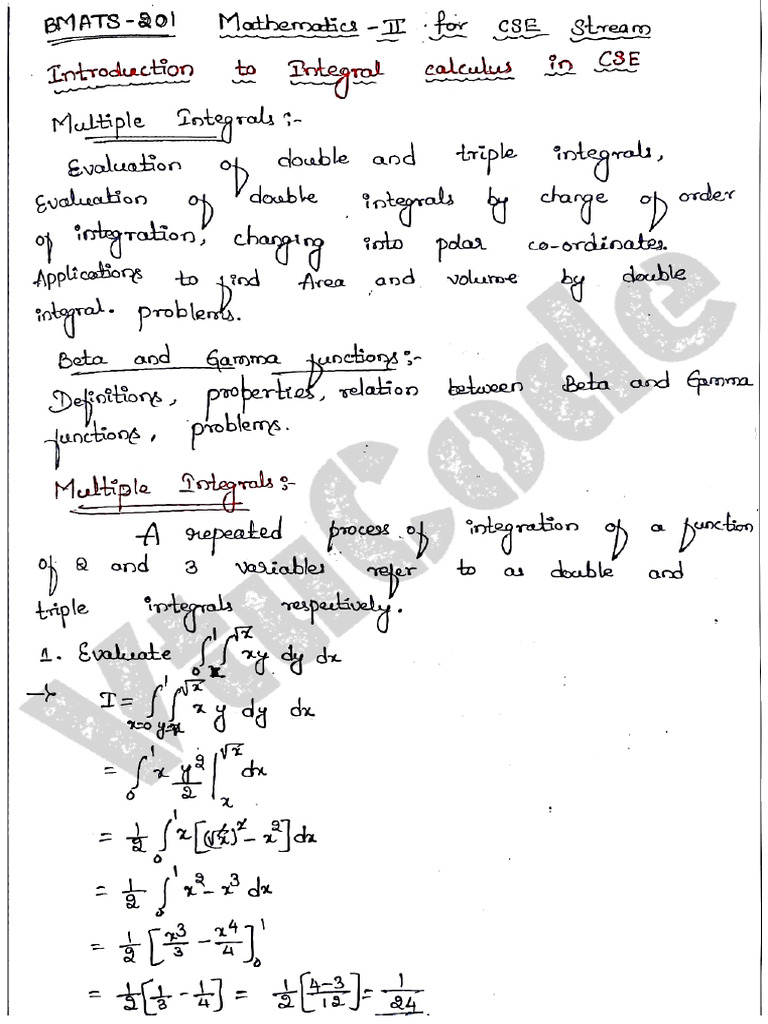 BMATS-201 Mathematics-II for CSE Stream
Introduction to Integral calculus in CSE
Multiple Integrals:-
Evaluation of double and triple integrals,
Evaluation of double integrals by change of order
of integration, changing into polar co-ordinates.
Applications to find Area and volume by double
integral. problems.
Beta and Gamma functions:-
Definitions, properties, relation between Beta and Gamma
functions, problems.
Multiple Integrals:-
A repeated process of integration of a function
of 2 and 3 variables refer to as double and
triple integrals respectively.
1. Evaluate ∫₀¹ ∫ₓ^√x xy dy dx
→ I = ∫_{x=0}^{1} ∫_{y=x}^{√x} x y dy dx
= ∫₀¹ x y²/2 |ₓ^√x dx
= 1/2 ∫₀¹ x[(√x)² - x²] dx
= 1/2 ∫₀¹ x² - x³ dx
= 1/2 [x³/3 - x⁴/4]₀¹
= 1/2 [1/3 - 1/4] = 1/2 [4-3/12] = 1/24
VtuCode